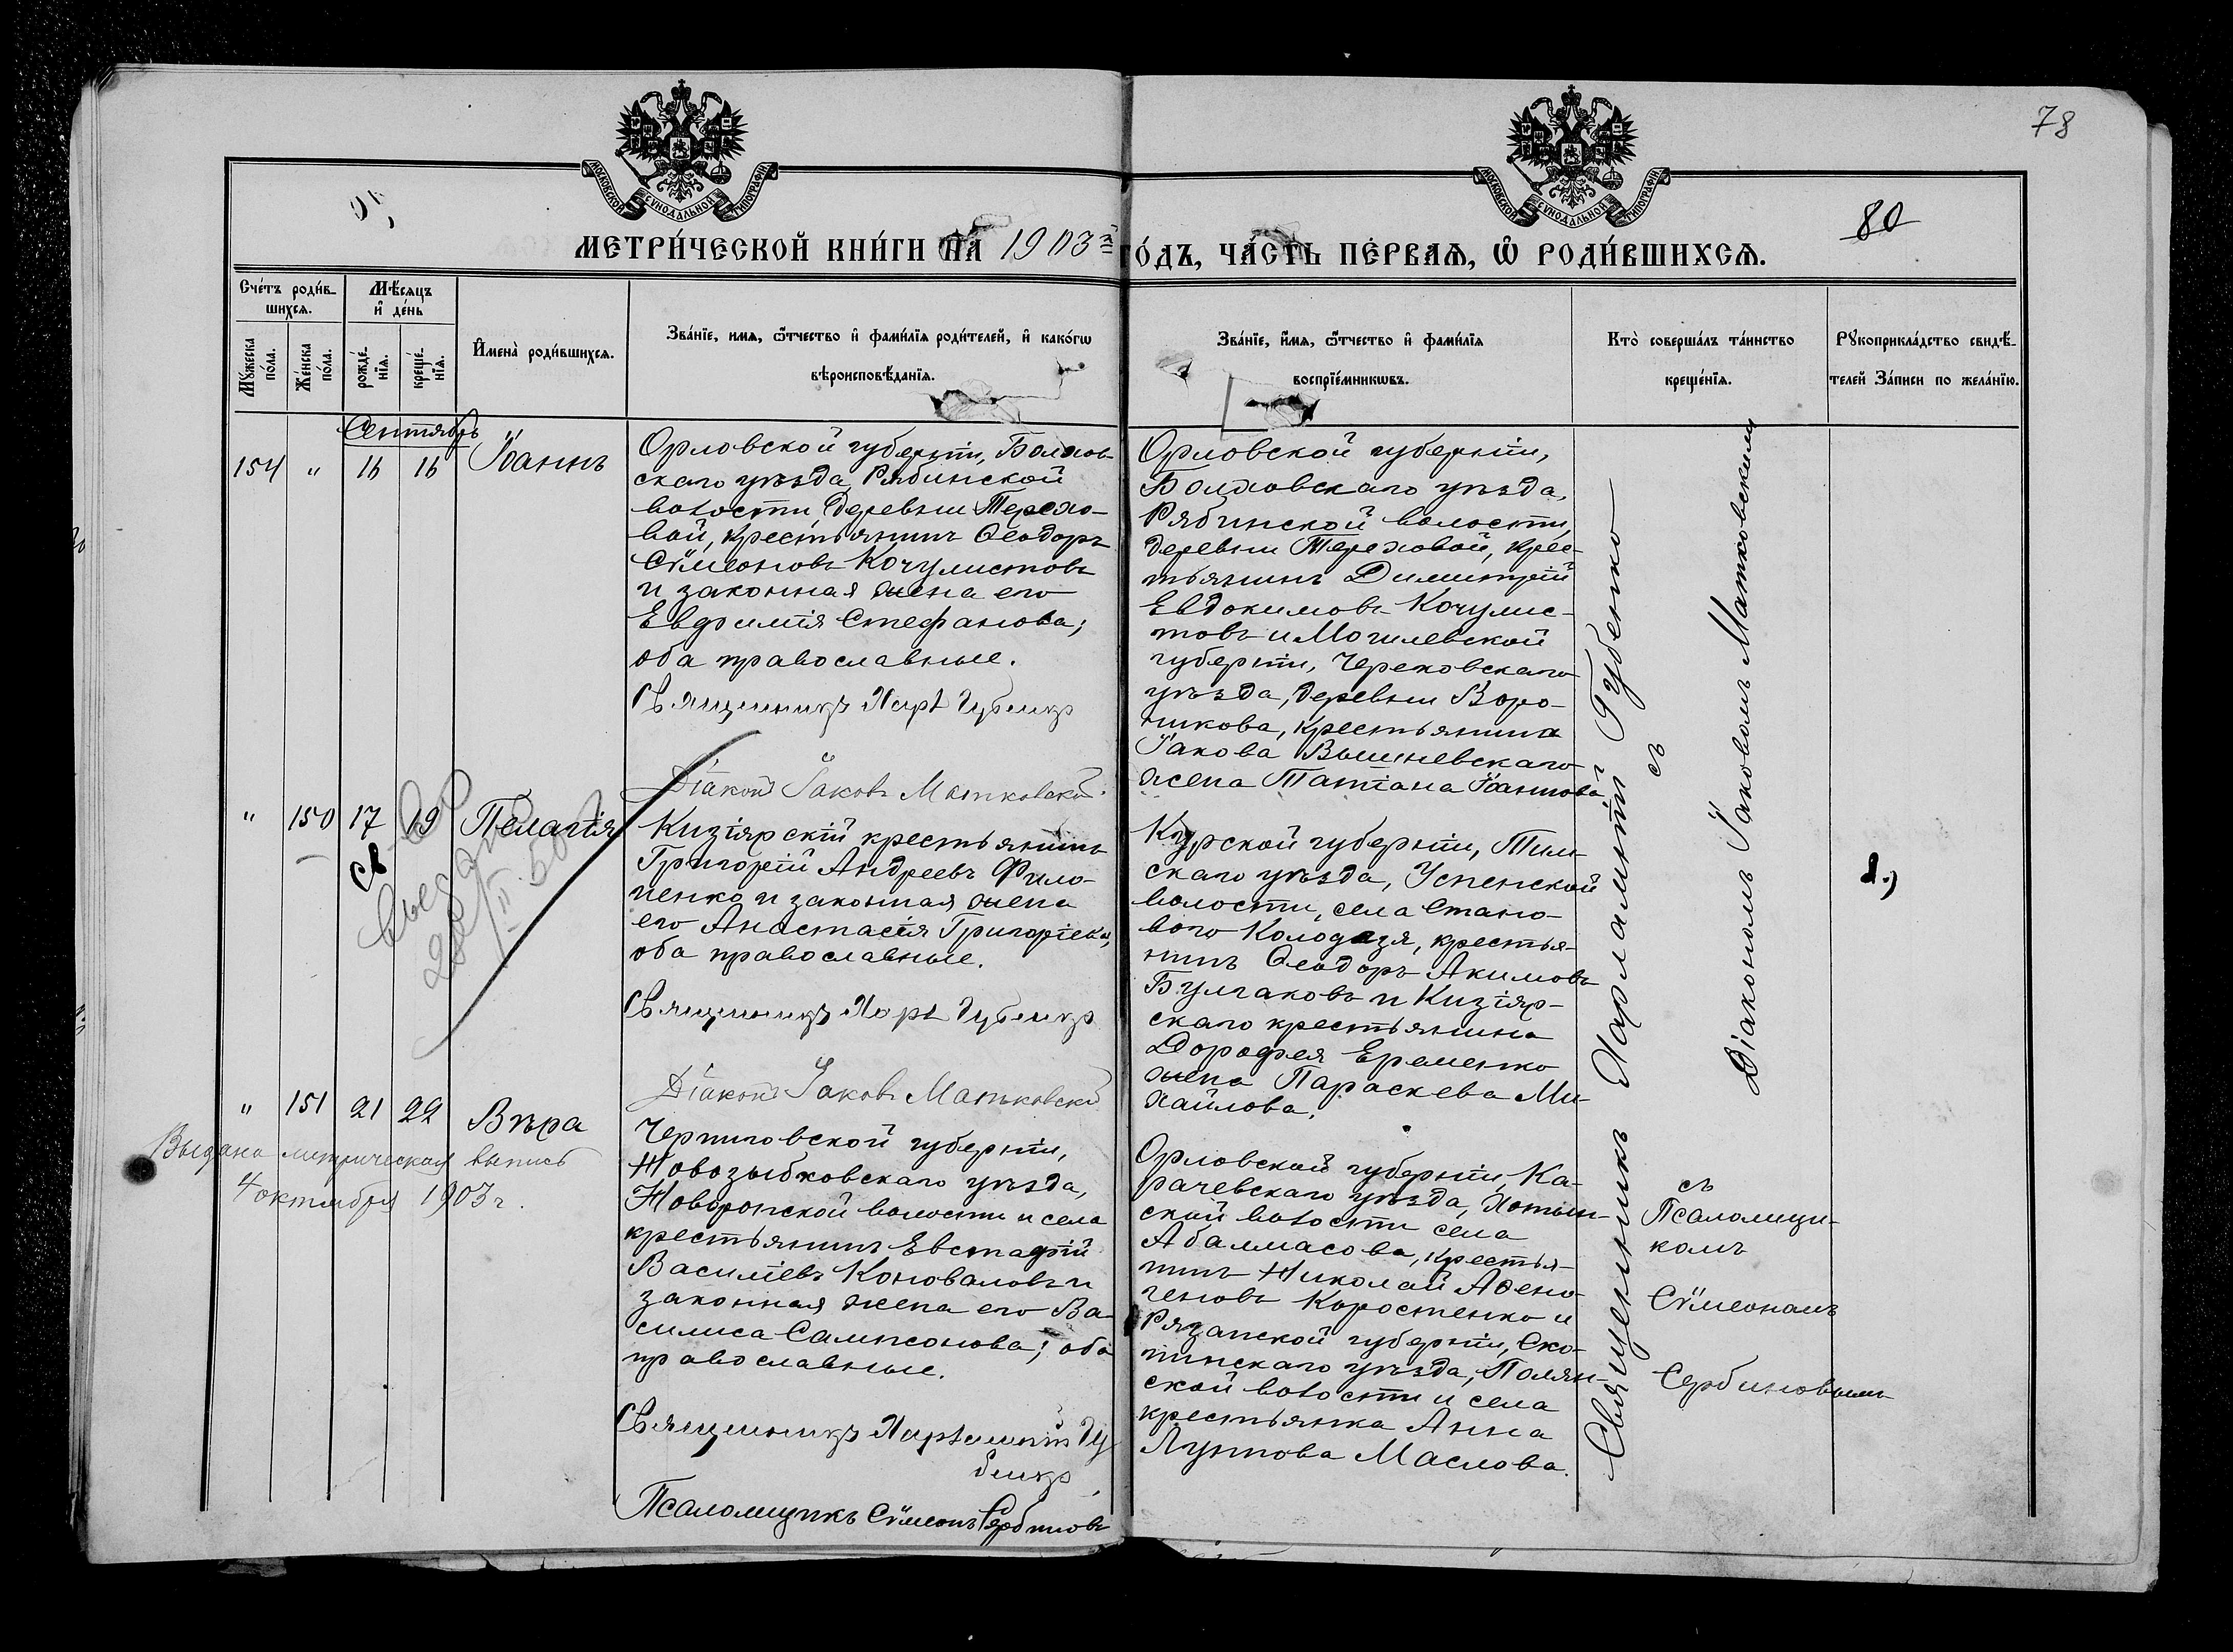 78
80
МОСКОВСКОЙ СѴНОДАЛЬНОЙ ТИПОГРАФІИ
МОСКОВСКОЙ СѴНОДАЛЬНОЙ ТИПОГРАФІИ
МЕТРИ́ЧЕСКОЙ КНИ́ГИ НА 1903й ГО́ДЪ, ЧА́СТЬ ПЕ́РВАЯ, Ѽ РОДИ́ВШИХСЯ.
Сче́тъ роди́в-
шихся.
Мꙋ́жеска по́ла.
Же́нска по́ла.
Мѣ́сяцъ
и де́нь
рожде́-
нїя.
креще́-
нїя.
Имена̀ роди́вшихся.
Зва́нїе, имя, ѻ́тчество и фами́лїя роди́телей, и како́гѡ
вѣроисповѣ́данїя.
Зва́нїе, и́мя, ѻ́тчество и фами́лїя
воспрїе́мникѡвъ.
Кто̀ соверша́лъ та́инство
креще́нїя.
Рꙋкоприкла́дство свидѣ́-
телей За́писи по жела́нїю.
Сентябрь
154 " 16 16 Іоаннъ
Орловской губерніи, Болхов-
скаго уѣзда, Рябинской
волости, деревни Терехо-
вой, крестьянинъ Ѳеодоръ
Сѵмеоновъ Кочумистовъ
и законная жена его
Евфимія Стефанова;
оба православные.
Священникъ Харл Губенко
Діаконъ Іаковъ Матковскій
Орловской губерніи,
Болховскаго уѣзда,
Рябинской волости,
деревни Тереховой, крес-
тьянинъ Димитрій
Евдокимовъ Кочумис-
товъ и Могилевской
губерніи, Чериковскаго
уѣзда, деревни Воро-
никова, крестьянина
Іакова Вышневскаго
жена Татіана Іоаннова
" 150 17 19 Пелагія
св-во
выдано
28/II.50
Кизіярскій крестьянинъ
Григорій Андреевъ Фило-
ненко и законная жена
его Анастасія Григоріева;
оба православные.
Священникъ Харл Губенко
Діаконъ Іаковъ Матковскій
Курской губерніи, Тим-
скаго уѣзда, Успенской
волости, села Стано-
вого Колодезя, крестья-
нинъ Ѳеодоръ Акимовъ
Булгаковъ и Кизіяр-
скаго крестьянина
Дорофея Еременко
жена Параскева Ми-
хайлова.
" 151 21 22 Вѣра
Выдана метрическая выпись
4 октября 1903 г.
Черниговской губерніи,
Новозыбковскаго уѣзда,
Новоропской волости и села
крестьянинъ Евстафій
Василіевъ Коноваловъ и
законная жена его Ва-
силиса Сампсонова; оба
православные.
Священникъ Харлампій Гу
бенко
Псаломщикъ Сѵмеонъ Сербиновъ
Орловской губерніи, Ка-
рачевскаго уѣзда, Хотын-
ской волости села
Абалмасова, крестья-
нинъ Николай Аѳено-
геновъ Коростенко и
Рязанской губерніи, Ско-
пинскаго уѣзда, Полян-
ской волости и села
крестьянка Анна
Луппова Маслова.
Священникъ Харлампій Губенко
съ
Діакономъ Іаковомъ Матковскимъ
съ
Псаломщи-
комъ
Сѵмеономъ
Сербиновымъ